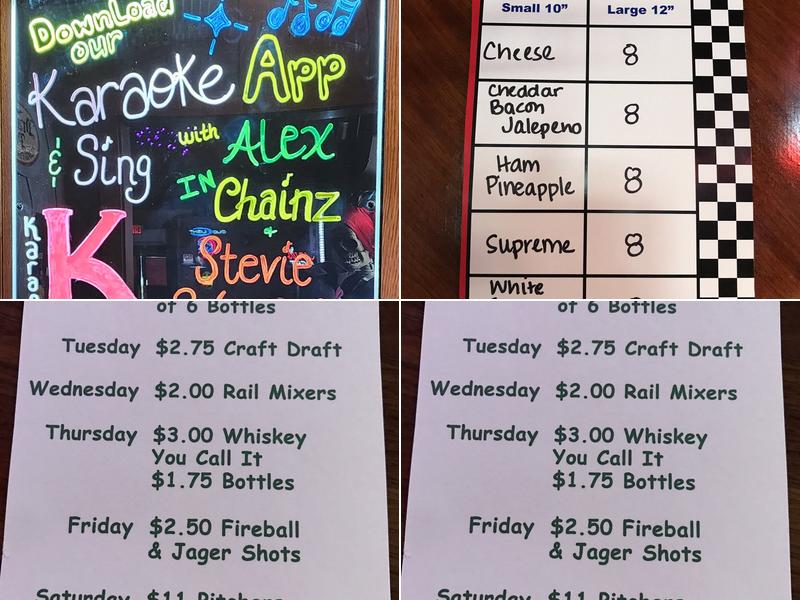 Download
our
Karaoke App
& Sing with Alex
IN Chainz
+
Stevie
K
Karao
Small 10" Large 12"
Cheese 8
Cheddar
Bacon
Jalepeno 8
Ham
Pineapple 8
Supreme 8
White
of 6 Bottles
Tuesday $2.75 Craft Draft
Wednesday $2.00 Rail Mixers
Thursday $3.00 Whiskey
You Call It
$1.75 Bottles
Friday $2.50 Fireball
& Jager Shots
Saturday $11 Pitchers
of 6 Bottles
Tuesday $2.75 Craft Draft
Wednesday $2.00 Rail Mixers
Thursday $3.00 Whiskey
You Call It
$1.75 Bottles
Friday $2.50 Fireball
& Jager Shots
Saturday $11 Pitchers